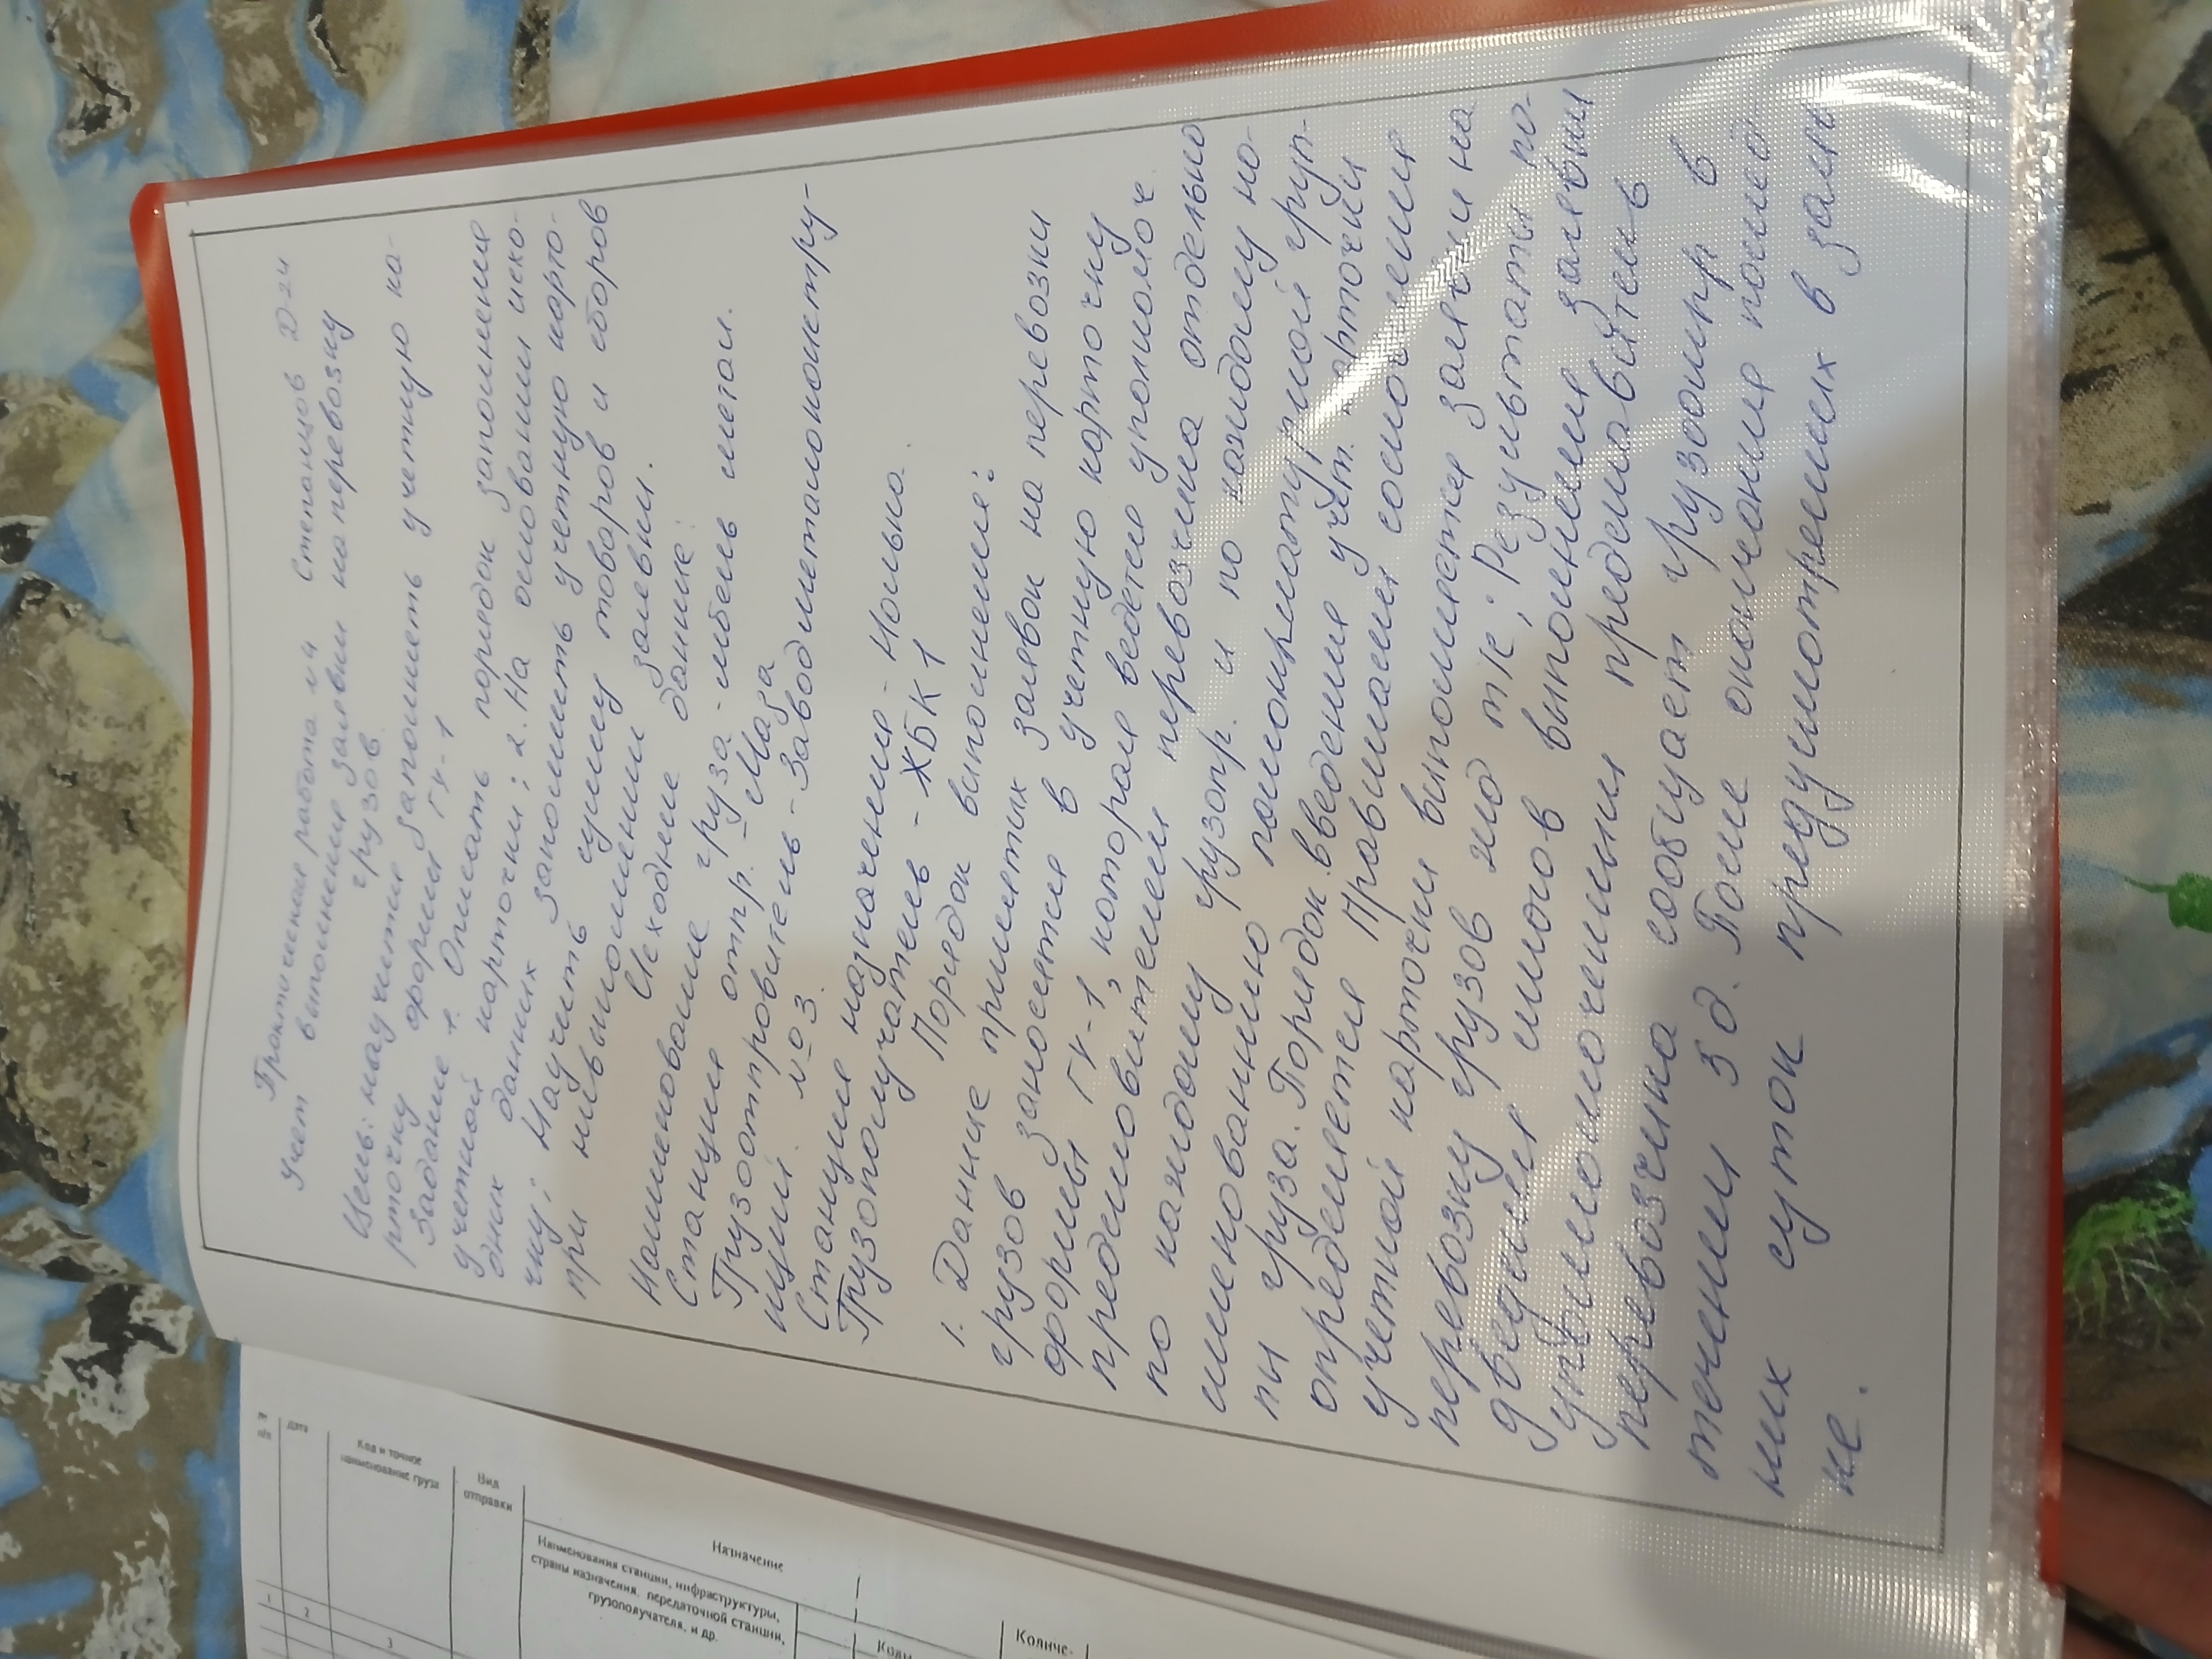 Практическая работа №4 Степанцов Д-24
Учет выполнения заявки на перевозку
грузов.
Цель: научится заполнять учетную ка-
рточку формы ГУ-1
Задание 1. Описать порядок заполнения
учетной карточки; 2. На основании исхо-
дных данных заполнить учетную карто-
чку; Научить сумму товаров и сборов
при невыполнении заявки.
Исходные данные:
Наименование груза - мебель метал.
Станция отпр. - Маза
Грузоотправитель - Завод металлоконстру-
кций №3.
Станция назначения - Нолька.
Грузополучатель - ЖБК 1
Порядок выполнение:
1. Данные принятых заявок на перевозки
грузов заносятся в учетную карточку
формы ГУ-1, которая ведется уполномоч.
представителем перевозчика отдельно
по каждому грузотпр. и по каждому на-
именованию номенклатурной груп-
пы груза. Порядок введения учет. карточки
определяется Правилами составления
учетной карточки выполняется заявки на
перевозку грузов жд тк; Результаты по-
дведения итогов выполнения заявки
уполномоченными представитель в
перевозчика сообщает грузоотпр в
течении 5 д. После окончания послед-
них суток предусмотренных в заяв
ке.
№ п/п
Дата
Код и точное
наименование груза
Вид
отправки
Назначение
Наименования станции, инфраструктуры,
страны назначения, передаточной станции,
грузополучателя, и др.
Коды
Количе-
1
2
3